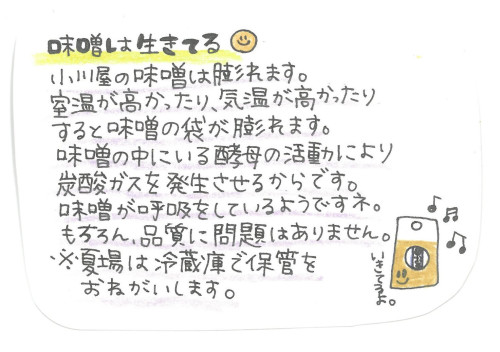 味噌は生きてる
小川屋の味噌は膨れます。
室温が高かったり、気温が高かったり
すると味噌の袋が膨れます。
味噌の中にいる酵母の活動により
炭酸ガスを発生させるからです。
味噌が呼吸をしているようですネ。
もちろん、品質に問題はありません。
※夏場は冷蔵庫で保管を
おねがいします。
いきてるよ。